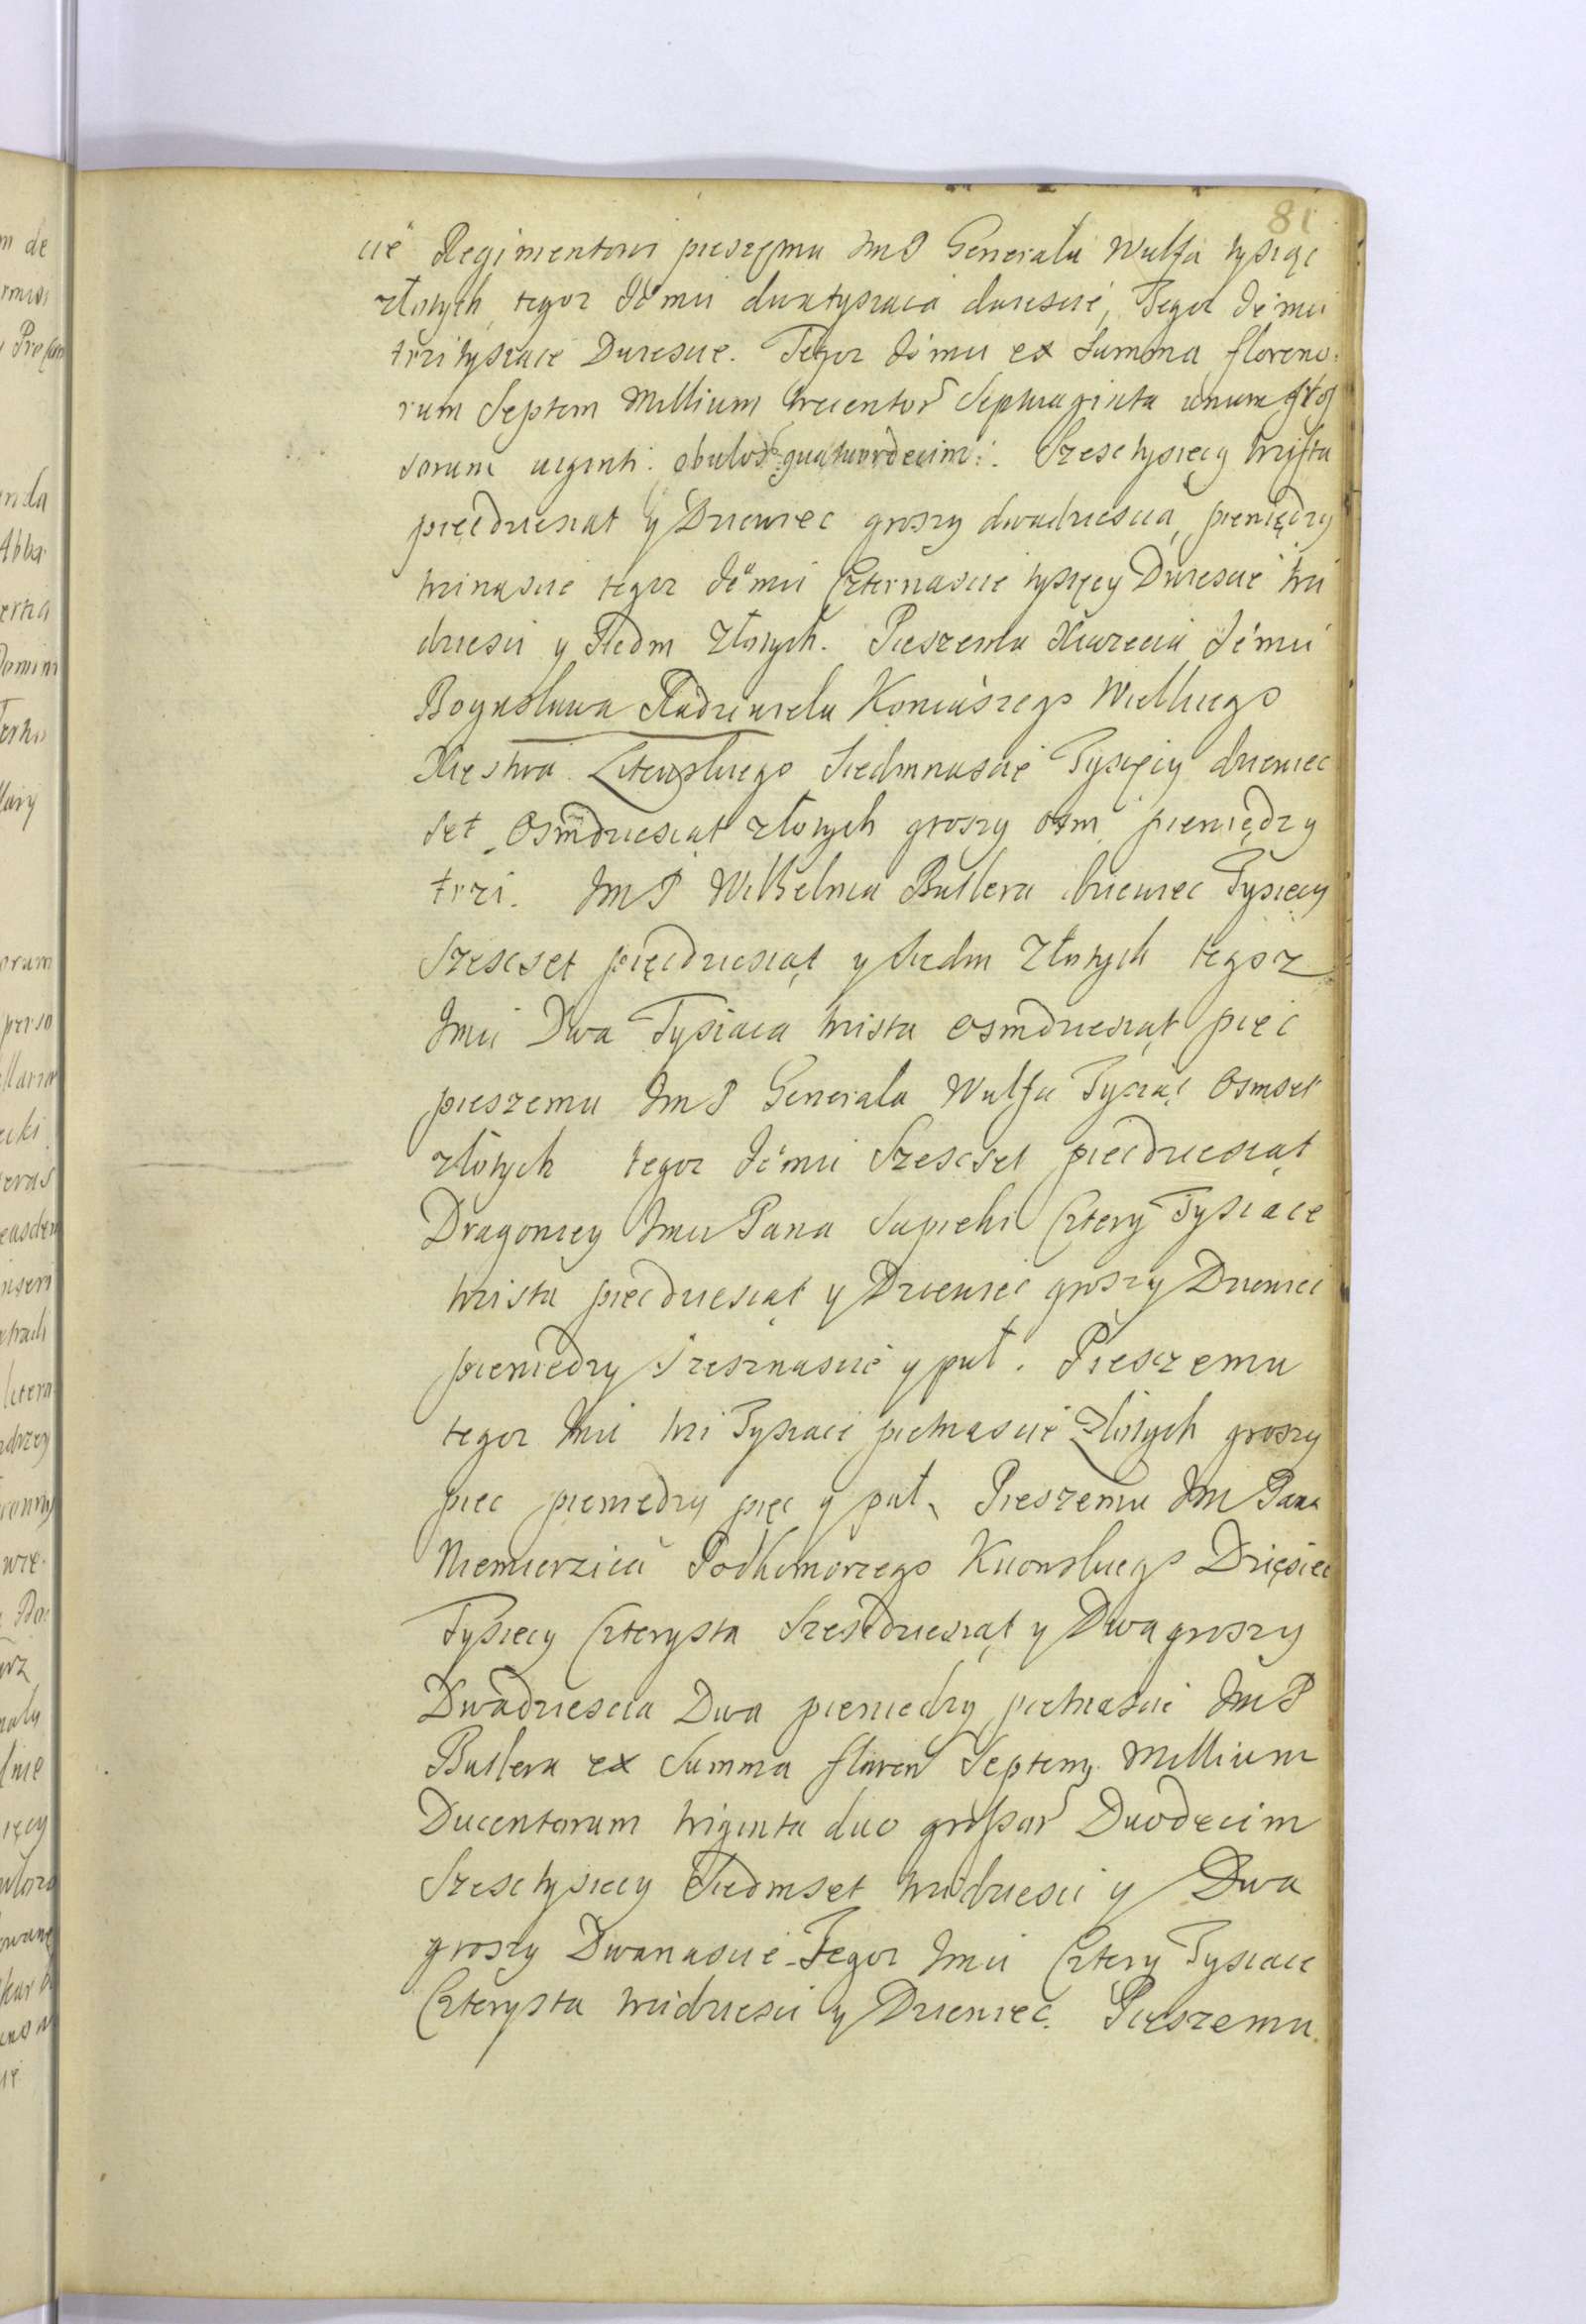 81
cie Regimentowi pieszęmu JmP Generała Wulfa tysiąc
złotych tegoz Jemu dwatysiaca dwiescie, Tegoz Jemu
trzitysiace Dwiescie. Tegoz Jemu ex Summa floreno:
rum Septem Millium trecentor Septuaginta unum
sorum viginti: obulos quatuordecim: Szesc tysięcy trzista
pięcdziesiat y Dziewiec groszy dwadziescia, pieniędzy
trzinascie tegoz Jemu Czternascie tysięcy Dwiescie trzi
dziesci y Siedm Złotych. Pieszemu Xiazecia Jemu
Bogusława Radziwiela Koniuszego Wielkiego
Xięstwa Litewskiego Siedmnascie Tysięcy dziewiec
set Osmdziesiąt złotych groszy osm pieniędzy
trzi. JmP Wilhelma Butlera dziewiec Tysięcy
Szescset pięcdziesiąt y siedm Złotych tegoz
Jmu Dwa Tysiaca trzista osmdziesiąt pięc
pieszemu JmP Generala Wulfa Tysiąc Osmset
złotych tegoz Jemu Szescset piecdziesiąt
Dragoniey Jmu Pana Sapiehi Cztery Tysiace
trzista piecdziesiąt y Dziewiec groszy Dziewiec
pieniedzy szesznascie y puł. Pieszemu
tegoz Jmu trzi Tysiace pietnascie Złotych groszy
piec pieniedzy pięc y puł, Pieszemu Jm Pana
Niemierzica Podkomorzego Kiiowskiego Dziesięc
Tysiecy Czterysta Szescdziesiąt y Dwa groszy
Dwadziescia Dwa pieniedzy pietnascie JmP
Butlera ex Summa floren Septem Millium
Ducentorum triginta duo grossor Duodecim
Szesc tysiecy Siedmset trzidziesci y Dwa
groszy Dwanascie Tegoz Jmu Cztery Tysiace
Czterysta trzidziesci y Dziewiec. Pieszemu